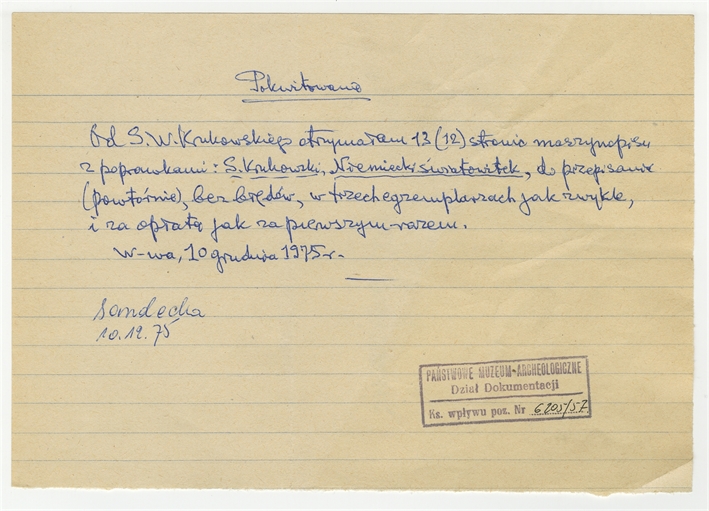 Pokwitowanie
Od S. W. Krukowskiego otrzymałam 13 (12) stronic maszynopisu
z poprawkami: S. Krukowski, Niemiecki światowitek, do przepisania
(powtórnie), bez błędów, w trzech egzemplarzach jak zwykle,
i za opłatą jak za pierwszym razem.
W-wa, 10 grudnia 1975 r.
Sandecka
10.12.75
PAŃSTWOWE MUZEUM-ARCHEOLOGICZNE
Dział Dokumentacji
Ks. wpływu poz. Nr 6205/57